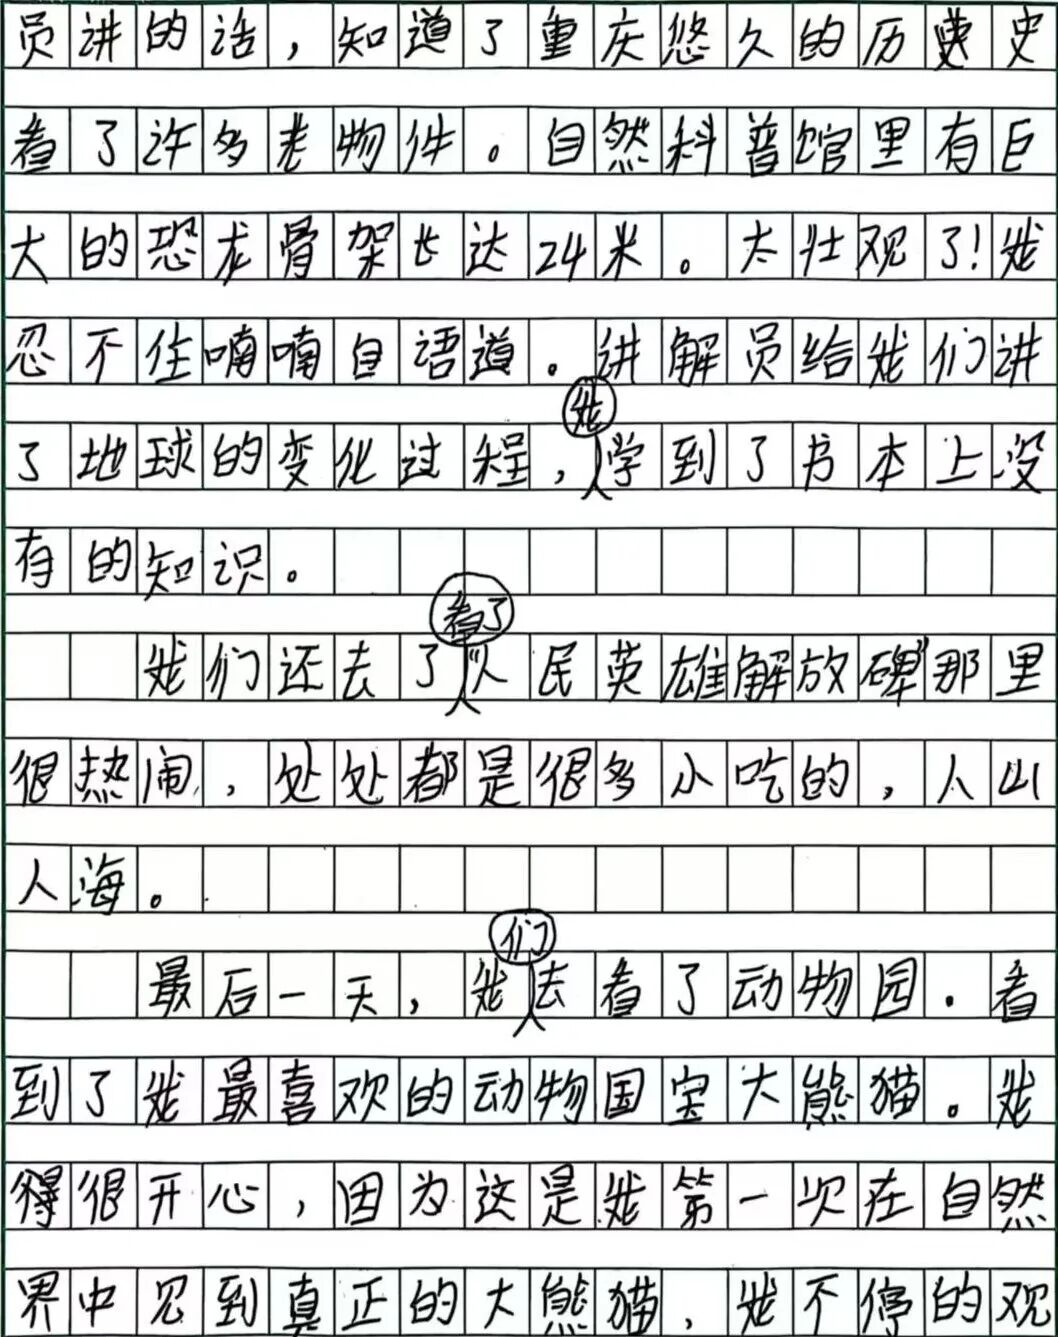 员讲的话，知道了重庆悠久的历史
看了许多老物件。自然科普馆里有巨
大的恐龙骨架长达24米。太壮观了！我
忍不住喃喃自语道。讲解员给我们讲
了地球的变化过程，我学到了书本上没
有的知识。
我们还去了看了“人民英雄解放碑”那里
很热闹，处处都是很多小吃的，人山
人海。
最后一天，我们去看了动物园.看
到了我最喜欢的动物国宝大熊猫。我
得很开心，因为这是我第一次在自然
界中见到真正的大熊猫，我不停的观